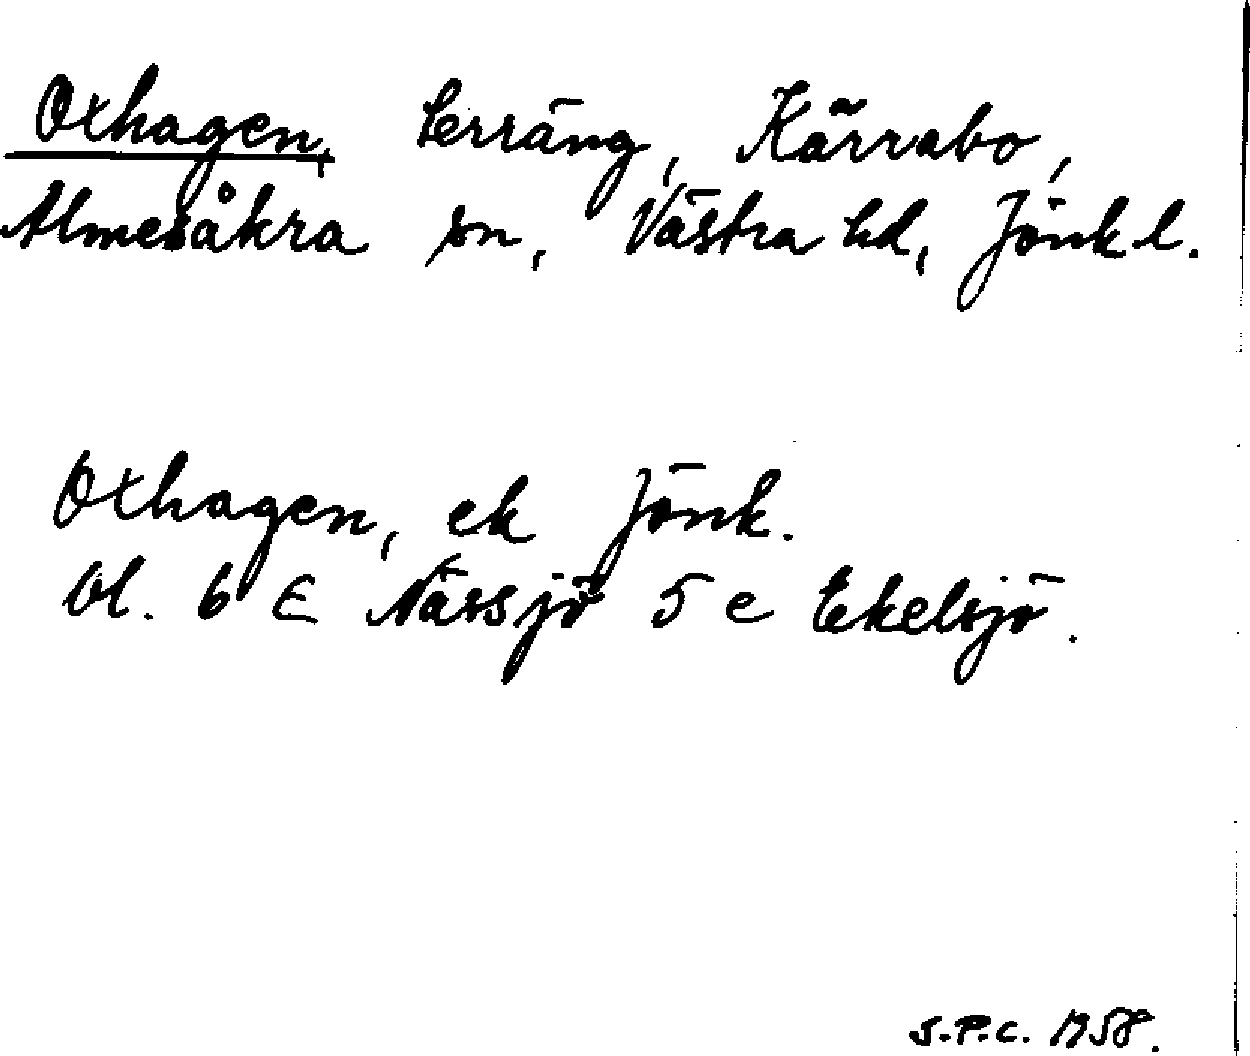 Oxhagen, terräng, Kärrabo,
Almesåkra sn, Västra hd, Jönk l.
Oxhagen, ek Jönk.
bl. 6 E Nässjö 5 e Ekelsjö.
S.P.C. 1958.